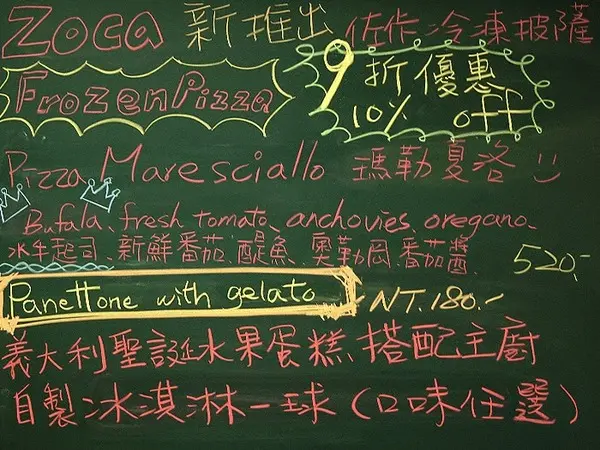 Zoca 新推出 佐作冷凍披薩
Frozen Pizza
9折優惠
10% off
Pizza Maresciallo 瑪勒夏洛
Bufala, fresh tomato, anchovies, oregano,
水牛起司、新鮮番茄、醍魚、奧勒岡、番茄醬 520,-
Panettone with gelato NT.180.-
義大利聖誕水果蛋糕,搭配主廚
自製冰淇淋一球(口味任選)